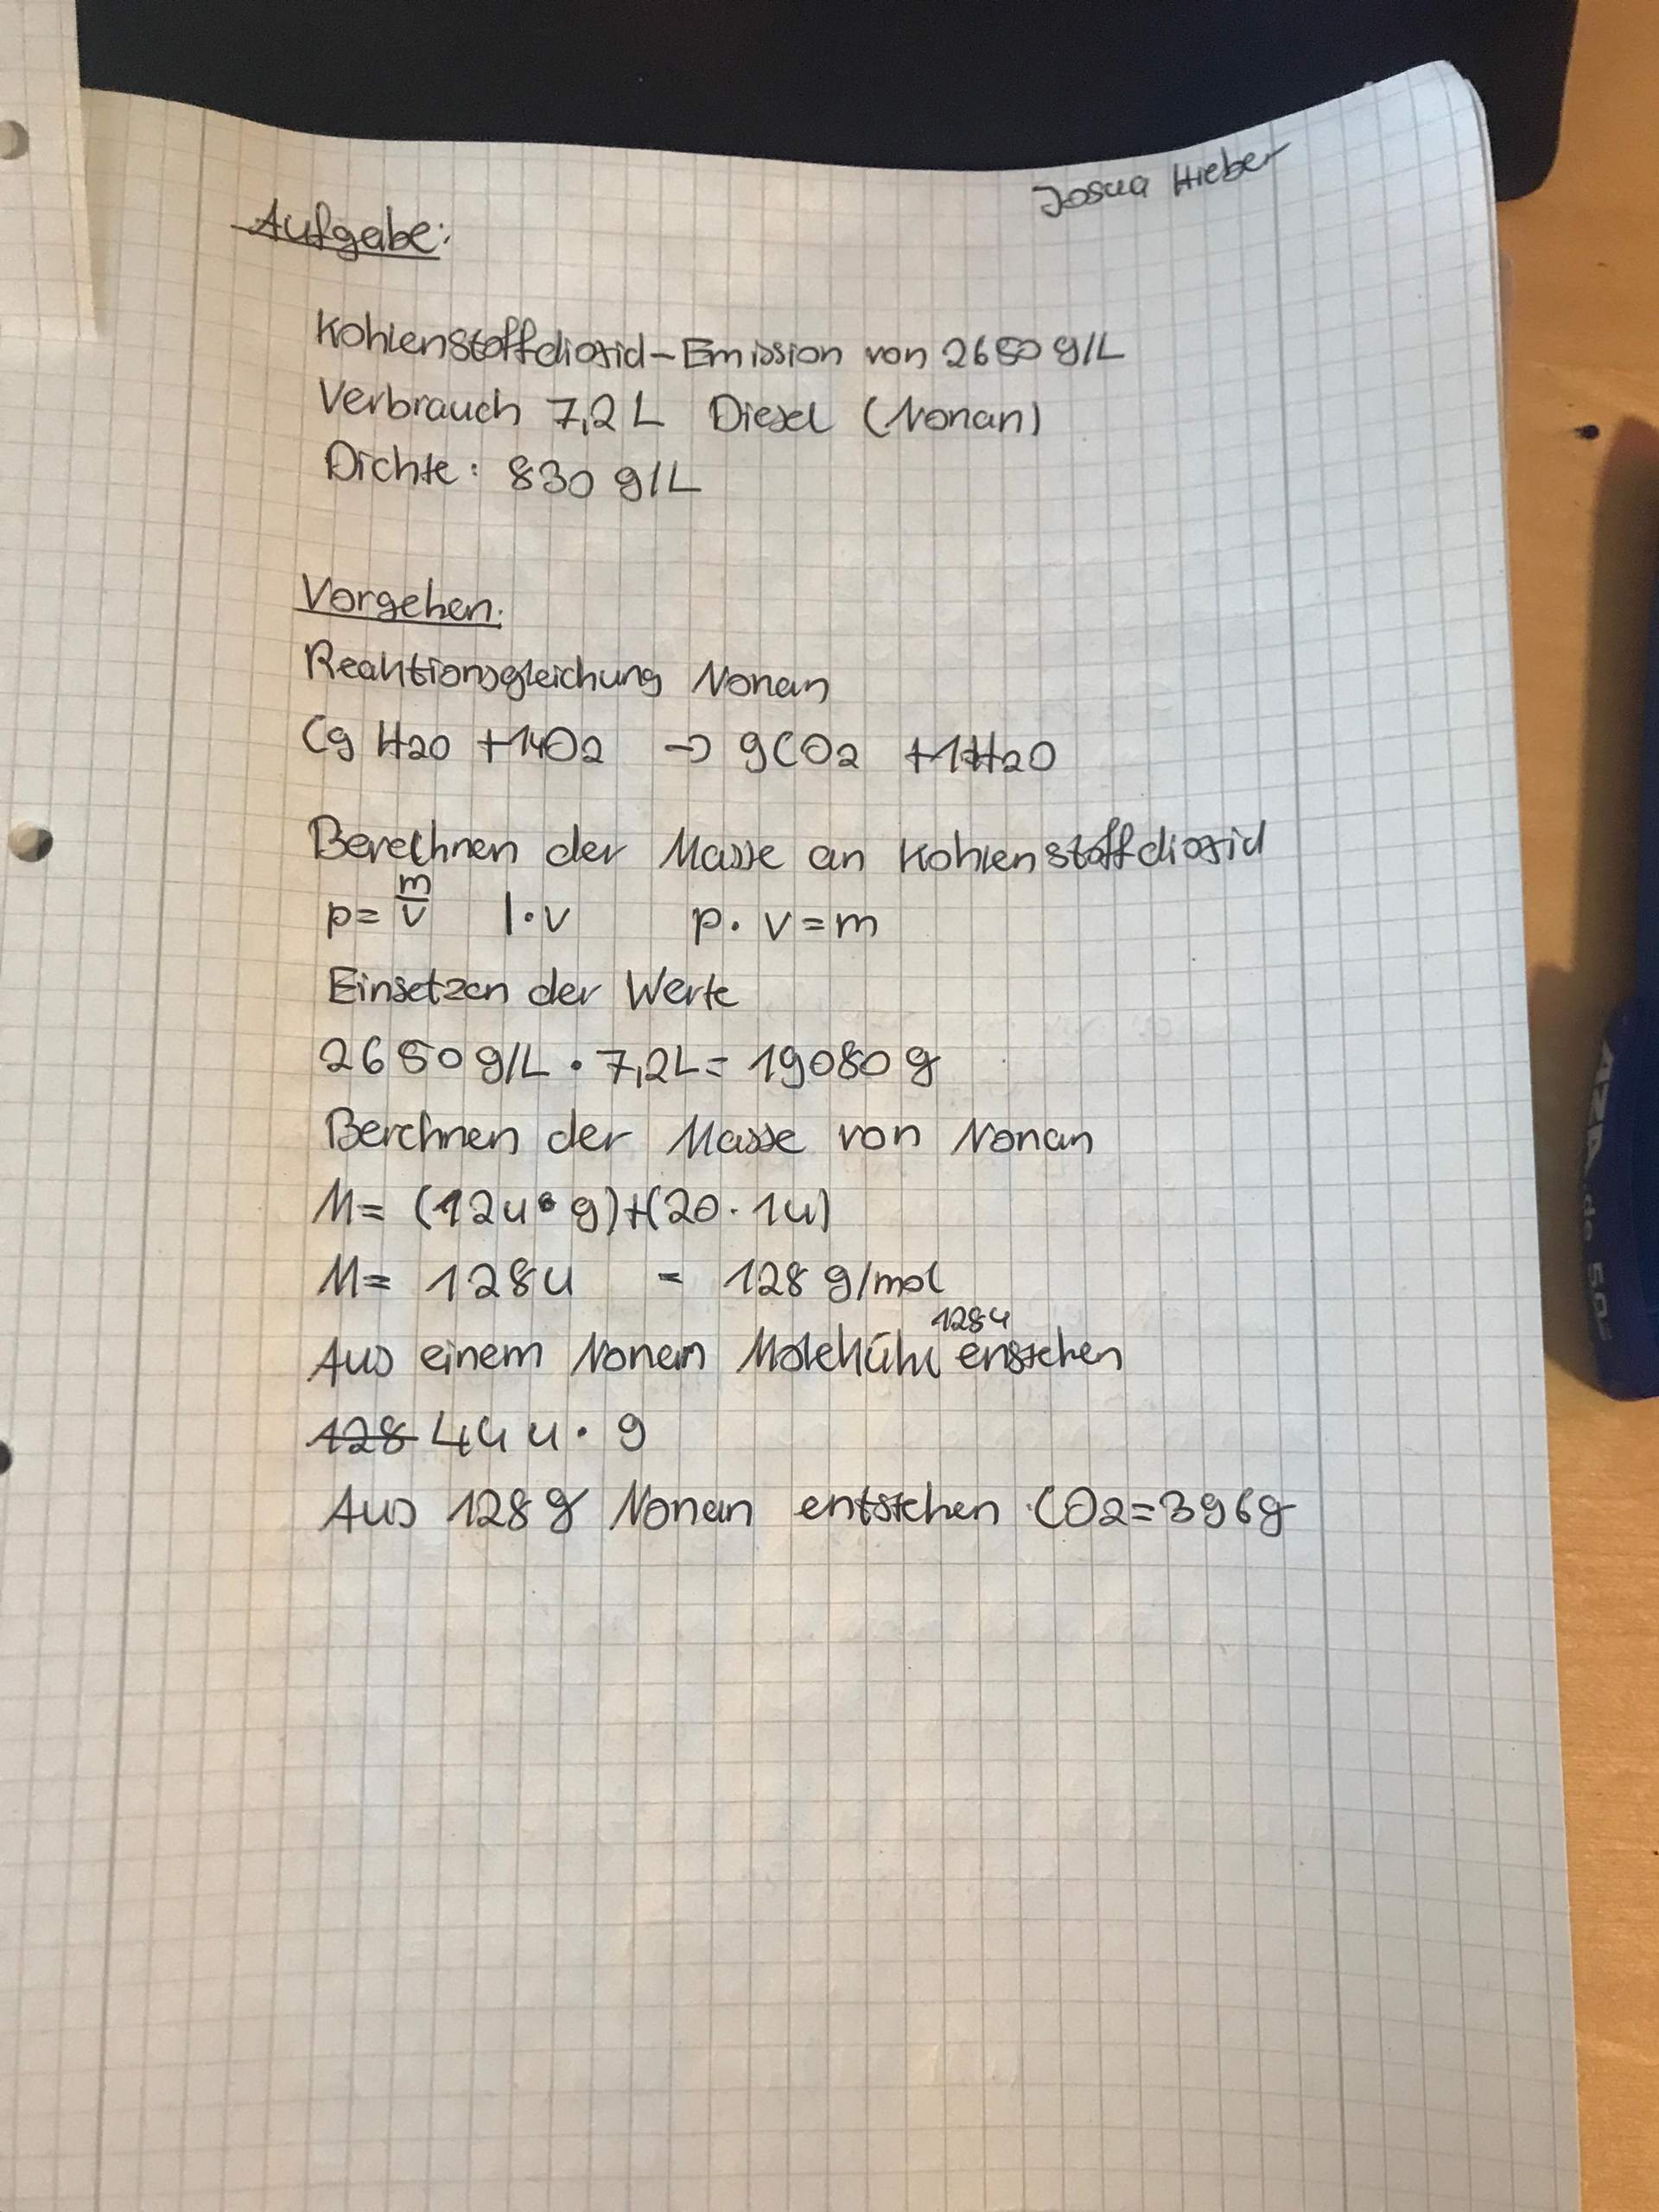 Josua Hieber
Aufgabe:
Kohlenstoffdioxid-Emission von 2650 g/L
Verbrauch 7,2 L Diesel (Nonan)
Dichte: 830 g/L
Vorgehen:
Reaktionsgleichung Nonan
C9 H20 + 14O2 → 9CO2 + 1H2O
Berechnen der Masse an Kohlenstoffdioxid
p = m/v |·v p · v = m
Einsetzen der Werte
2650 g/L · 7,2L = 19080 g
Berchnen der Masse von Nonan
M = (12u · 9)+(20 · 1u)
M = 128u = 128 g/mol
Aus einem Nonan Molekühl 128u enstehen
128 44 u · 9
Aus 128 g Nonan entstehen CO2 = 396g
AZA